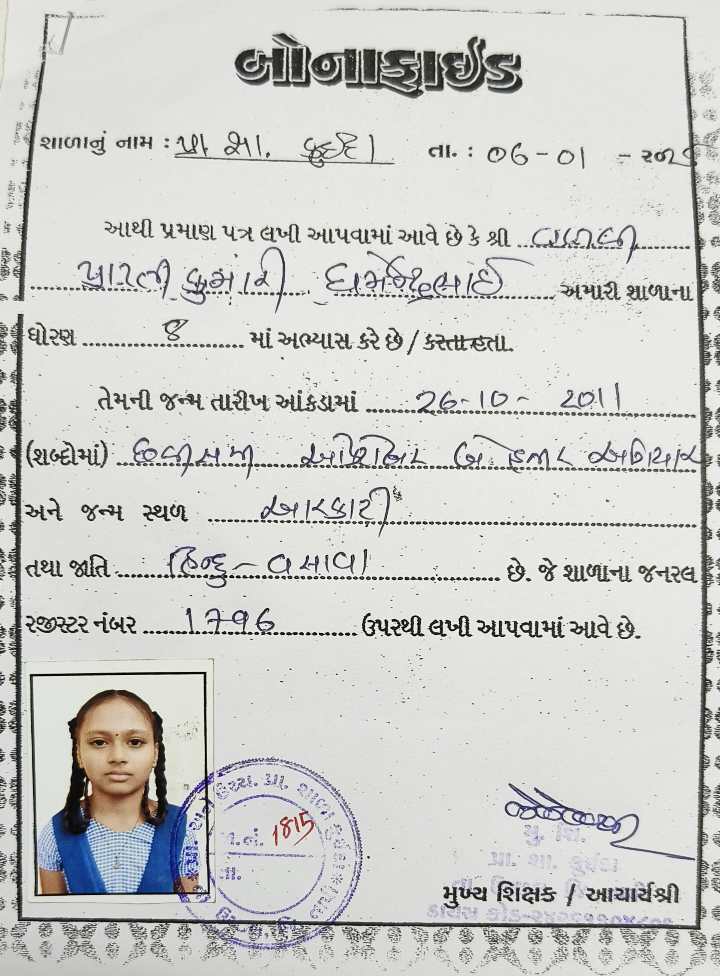 બોનાફાઈડ
શાળાનું નામ : પ્રા શા. કુઇદા તા. : ૦6-૦1 - ૨૦૨
આથી પ્રમાણ પત્ર લખી આપવામાં આવે છે કે શ્રી
કુમારી ધર્મેન્દ્રભાઈ અમારી શાળાના
ધોરણ 8 માં અભ્યાસ કરે છે / કરતા હતા.
તેમની જન્મ તારીખ આંકડામાં 26-10-2011
(શબ્દોમાં) છવ્વીસમી ઓક્ટોબર બે હજાર અગિયાર
અને જન્મ સ્થળ આરકાટી
તથા જાતિ હિન્દુ - વસાવા છે. જે શાળાના જનરલ
રજીસ્ટર નંબર 1796 ઉપરથી લખી આપવામાં આવે છે.
પ્રા. શાળા
1815
મુ. શિ.
પ્રા. શા. કુઇદા
મુખ્ય શિક્ષક / આચાર્યશ્રી
ડાયસ કોડ